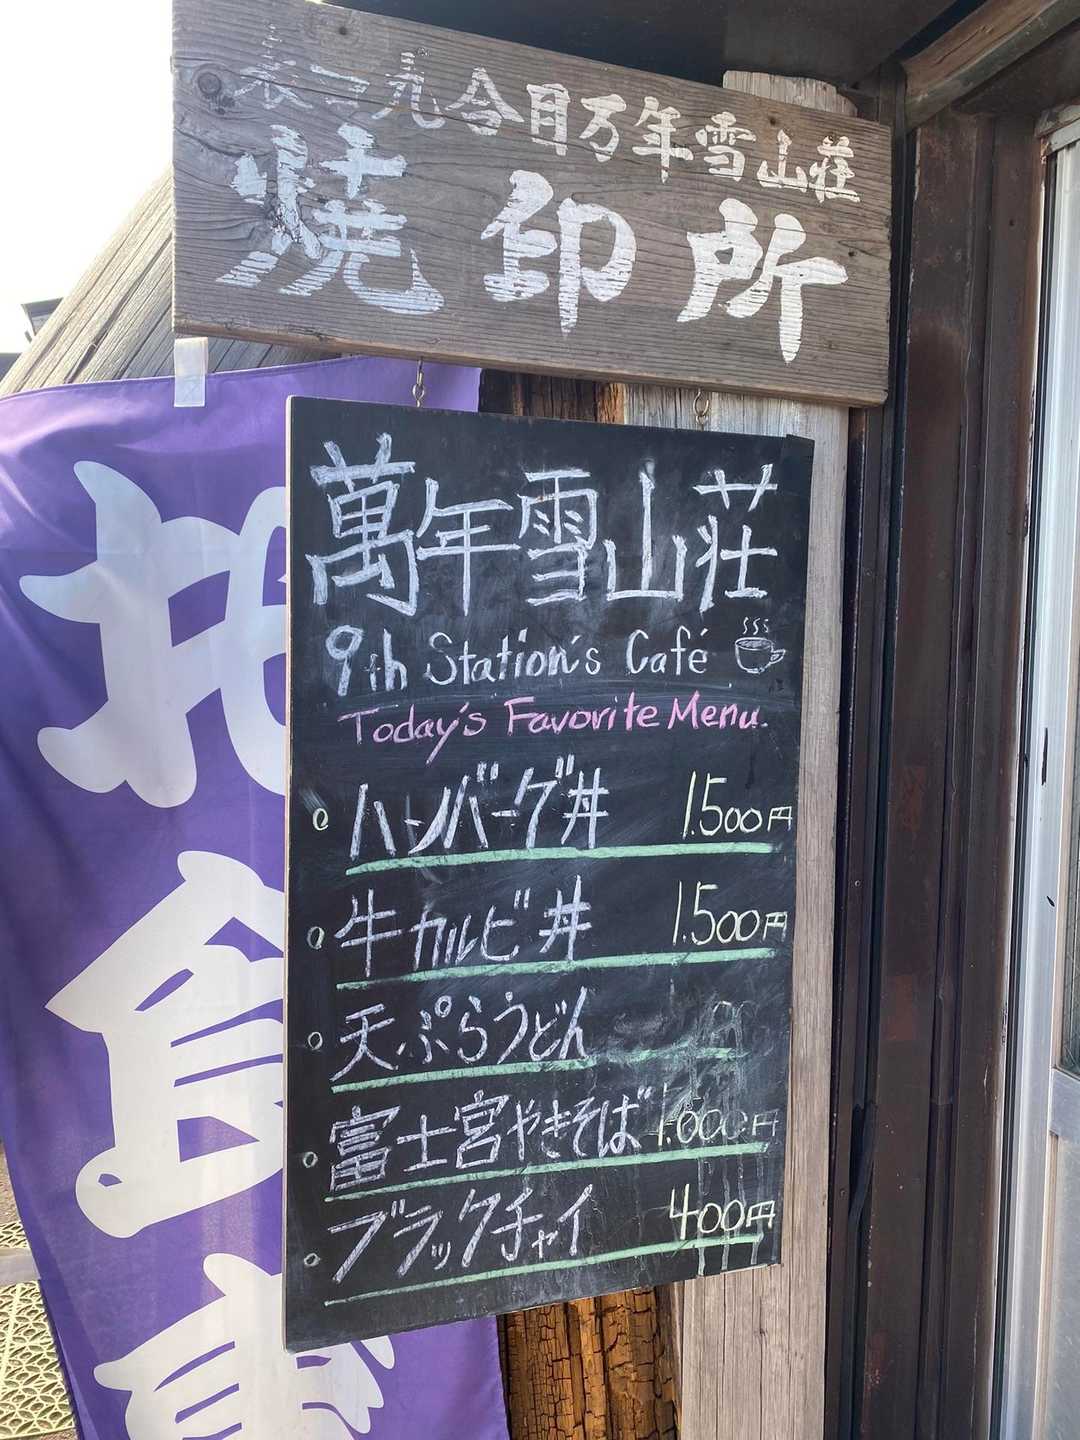 表口九合目万年雪山荘
焼印所
萬年雪山荘
9th Station's Café
Today's Favorite Menu.
ハンバーグ丼 1.500円
牛カルビ丼 1.500円
天ぷらうどん
富士宮やきそば 1.000円
ブラックチャイ 400円